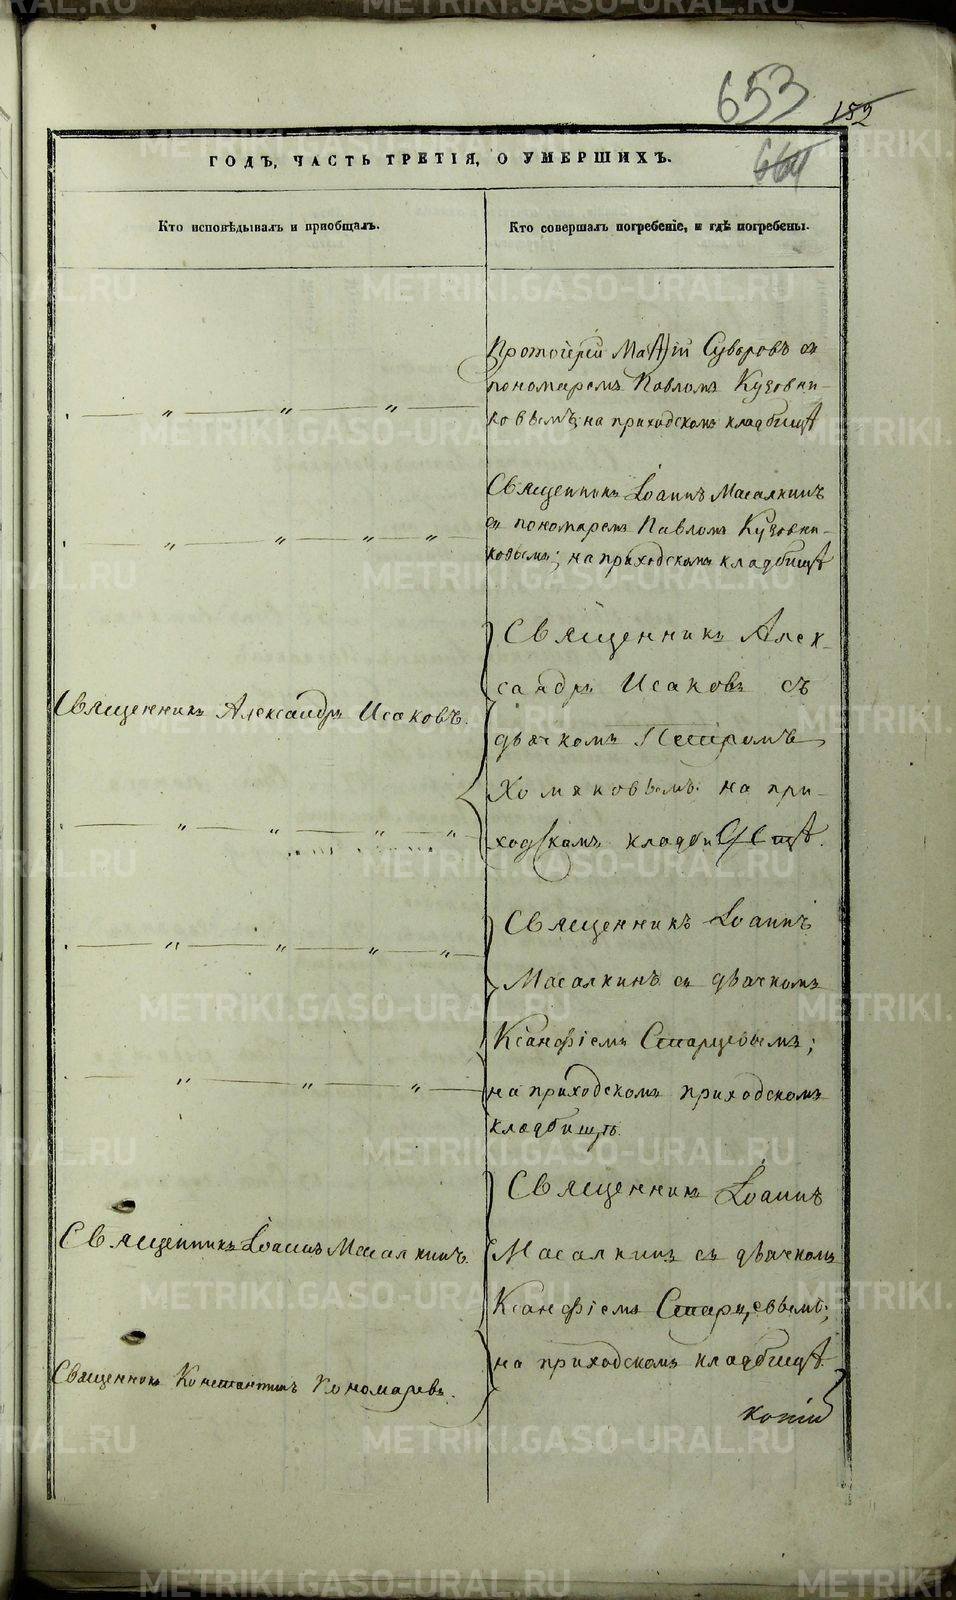 653
152
664
ГОДЪ, ЧАСТЬ ТРЕТІЯ, О УМЕРШИХЪ.
Кто исповѣдывалъ и пріобщалъ.
Кто совершалъ погребеніе, и гдѣ погребены.
Протоіерей Маѳій Суворовъ съ
пономаремъ Павломъ Кузовни-
ковымъ; на приходскомъ кладбищѣ
Священникъ Іоаннъ Масалкинъ
съ пономаремъ Павломъ Кузовни-
ковымъ; на приходскомъ кладбищѣ
Священникъ Алек-
сандръ Исаковъ съ
Священникъ Александръ Исаковъ.
дьячкомъ Петромъ
Хомяковымъ. на при-
ходскомъ кладбищѣ.
Священникъ Іоаннъ
Масалкинъ съ дьячкомъ
Ксанфіемъ Старцевымъ;
на приходскомъ приходскомъ
кладбищѣ.
Священникъ Іоаннъ
Священникъ Іоаннъ Масалкинъ.
Масалкинъ съ дьячкомъ
Ксанфіемъ Старцевымъ;
на приходскомъ кладбищѣ.
Священникъ Константинъ Пономаревъ.
METRIKI.GASO-URAL.RU